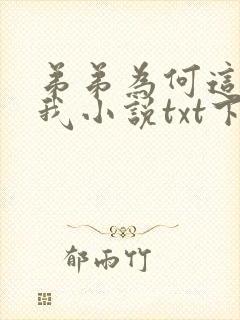 弟弟為何這
我小說txt下
郁雨竹